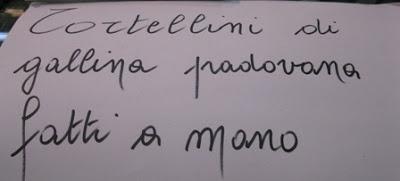 Tortellini di
gallina padovana
fatti a mano